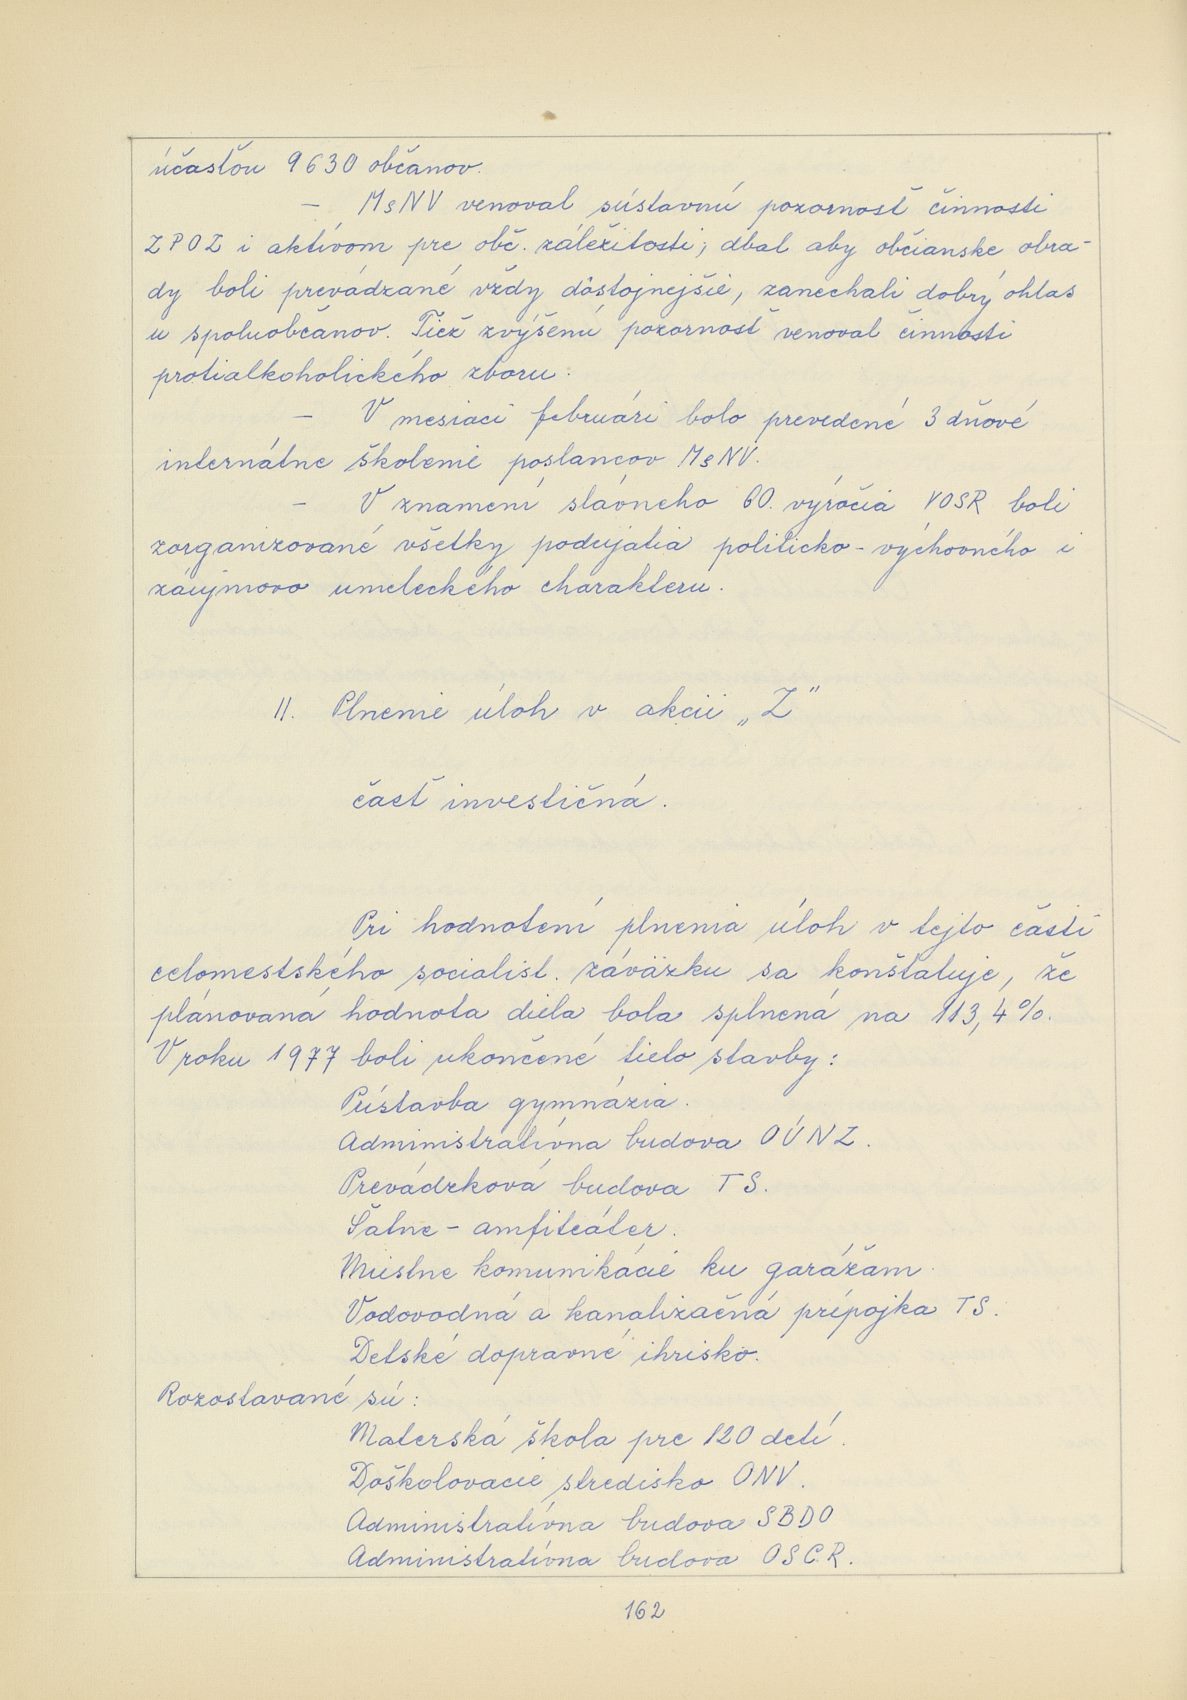 účasťou 9630 občanov.
– MsNV venoval sústavnú pozornosť činnosti
ZPOZ i aktívom pre obč. záležitosti, dbal aby občianske obra-
dy boli prevádzané vždy dôstojnejšie, zanechali dobrý ohlas
u spoluobčanov. Tiež zvýšenú pozornosť venoval činnosti
protialkoholického zboru.
– V mesiaci februári bolo prevedené 3 dňové
internátne školenie poslancov MsNV.
– V znamení slávneho 60. výročia VOSR boli
zorganizované všetky podujatia politicko-výchovného i
záujmovo umeleckého charakteru.
II. Plnenie úloh v akcii „Z"
časť investičná.
Pri hodnotení plnenia úloh v tejto časti
celomestského socialist. záväzku sa konštatuje, že
plánovaná hodnota diela bola splnená na 113,4%.
V roku 1977 boli ukončené tieto stavby:
Pístavba gymnázia.
Administratívna budova OÚNZ.
Prevádzková budova TS.
Šatne – amfiteáter.
Miestne komunikácie ku garážam.
Vodovodná a kanalizačná prípojka TS.
Detské dopravné ihrisko.
Rozostavané sú:
Materská škola pre 120 detí.
Doškolovacie stredisko ONV.
Administratívna budova SBDO
Administratívna budova OSCR.
162